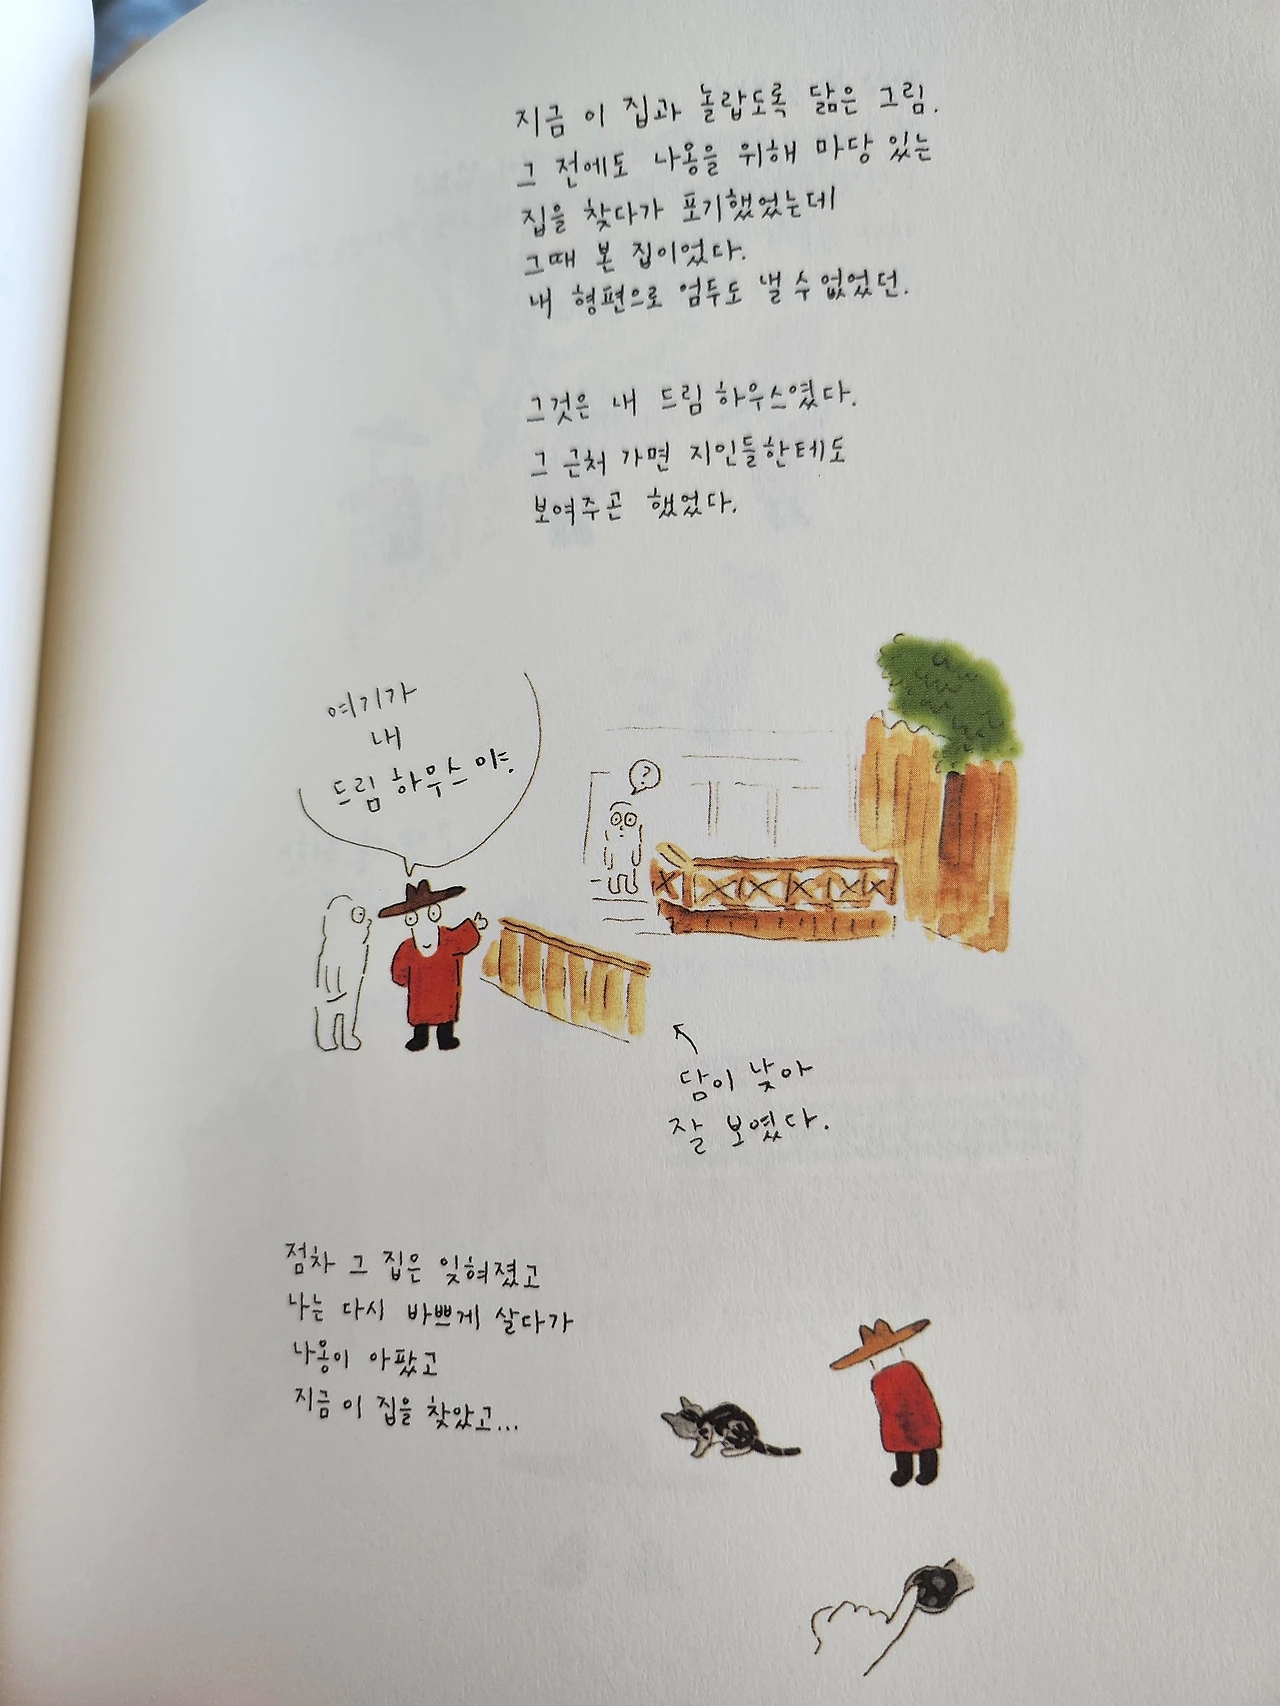 지금 이 집과 놀랍도록 닮은 그림.
그 전에도 나옹을 위해 마당 있는
집을 찾다가 포기했었는데
그때 본 집이었다.
내 형편으로 엄두도 낼 수 없었던.
그것은 내 드림 하우스였다.
그 근처 가면 지인들한테도
보여주곤 했었다.
여기가
내
드림 하우스야.
?
담이 낮아
잘 보였다.
점차 그 집은 잊혀졌고
나는 다시 바쁘게 살다가
나옹이 아팠고
지금 이 집을 찾았고...